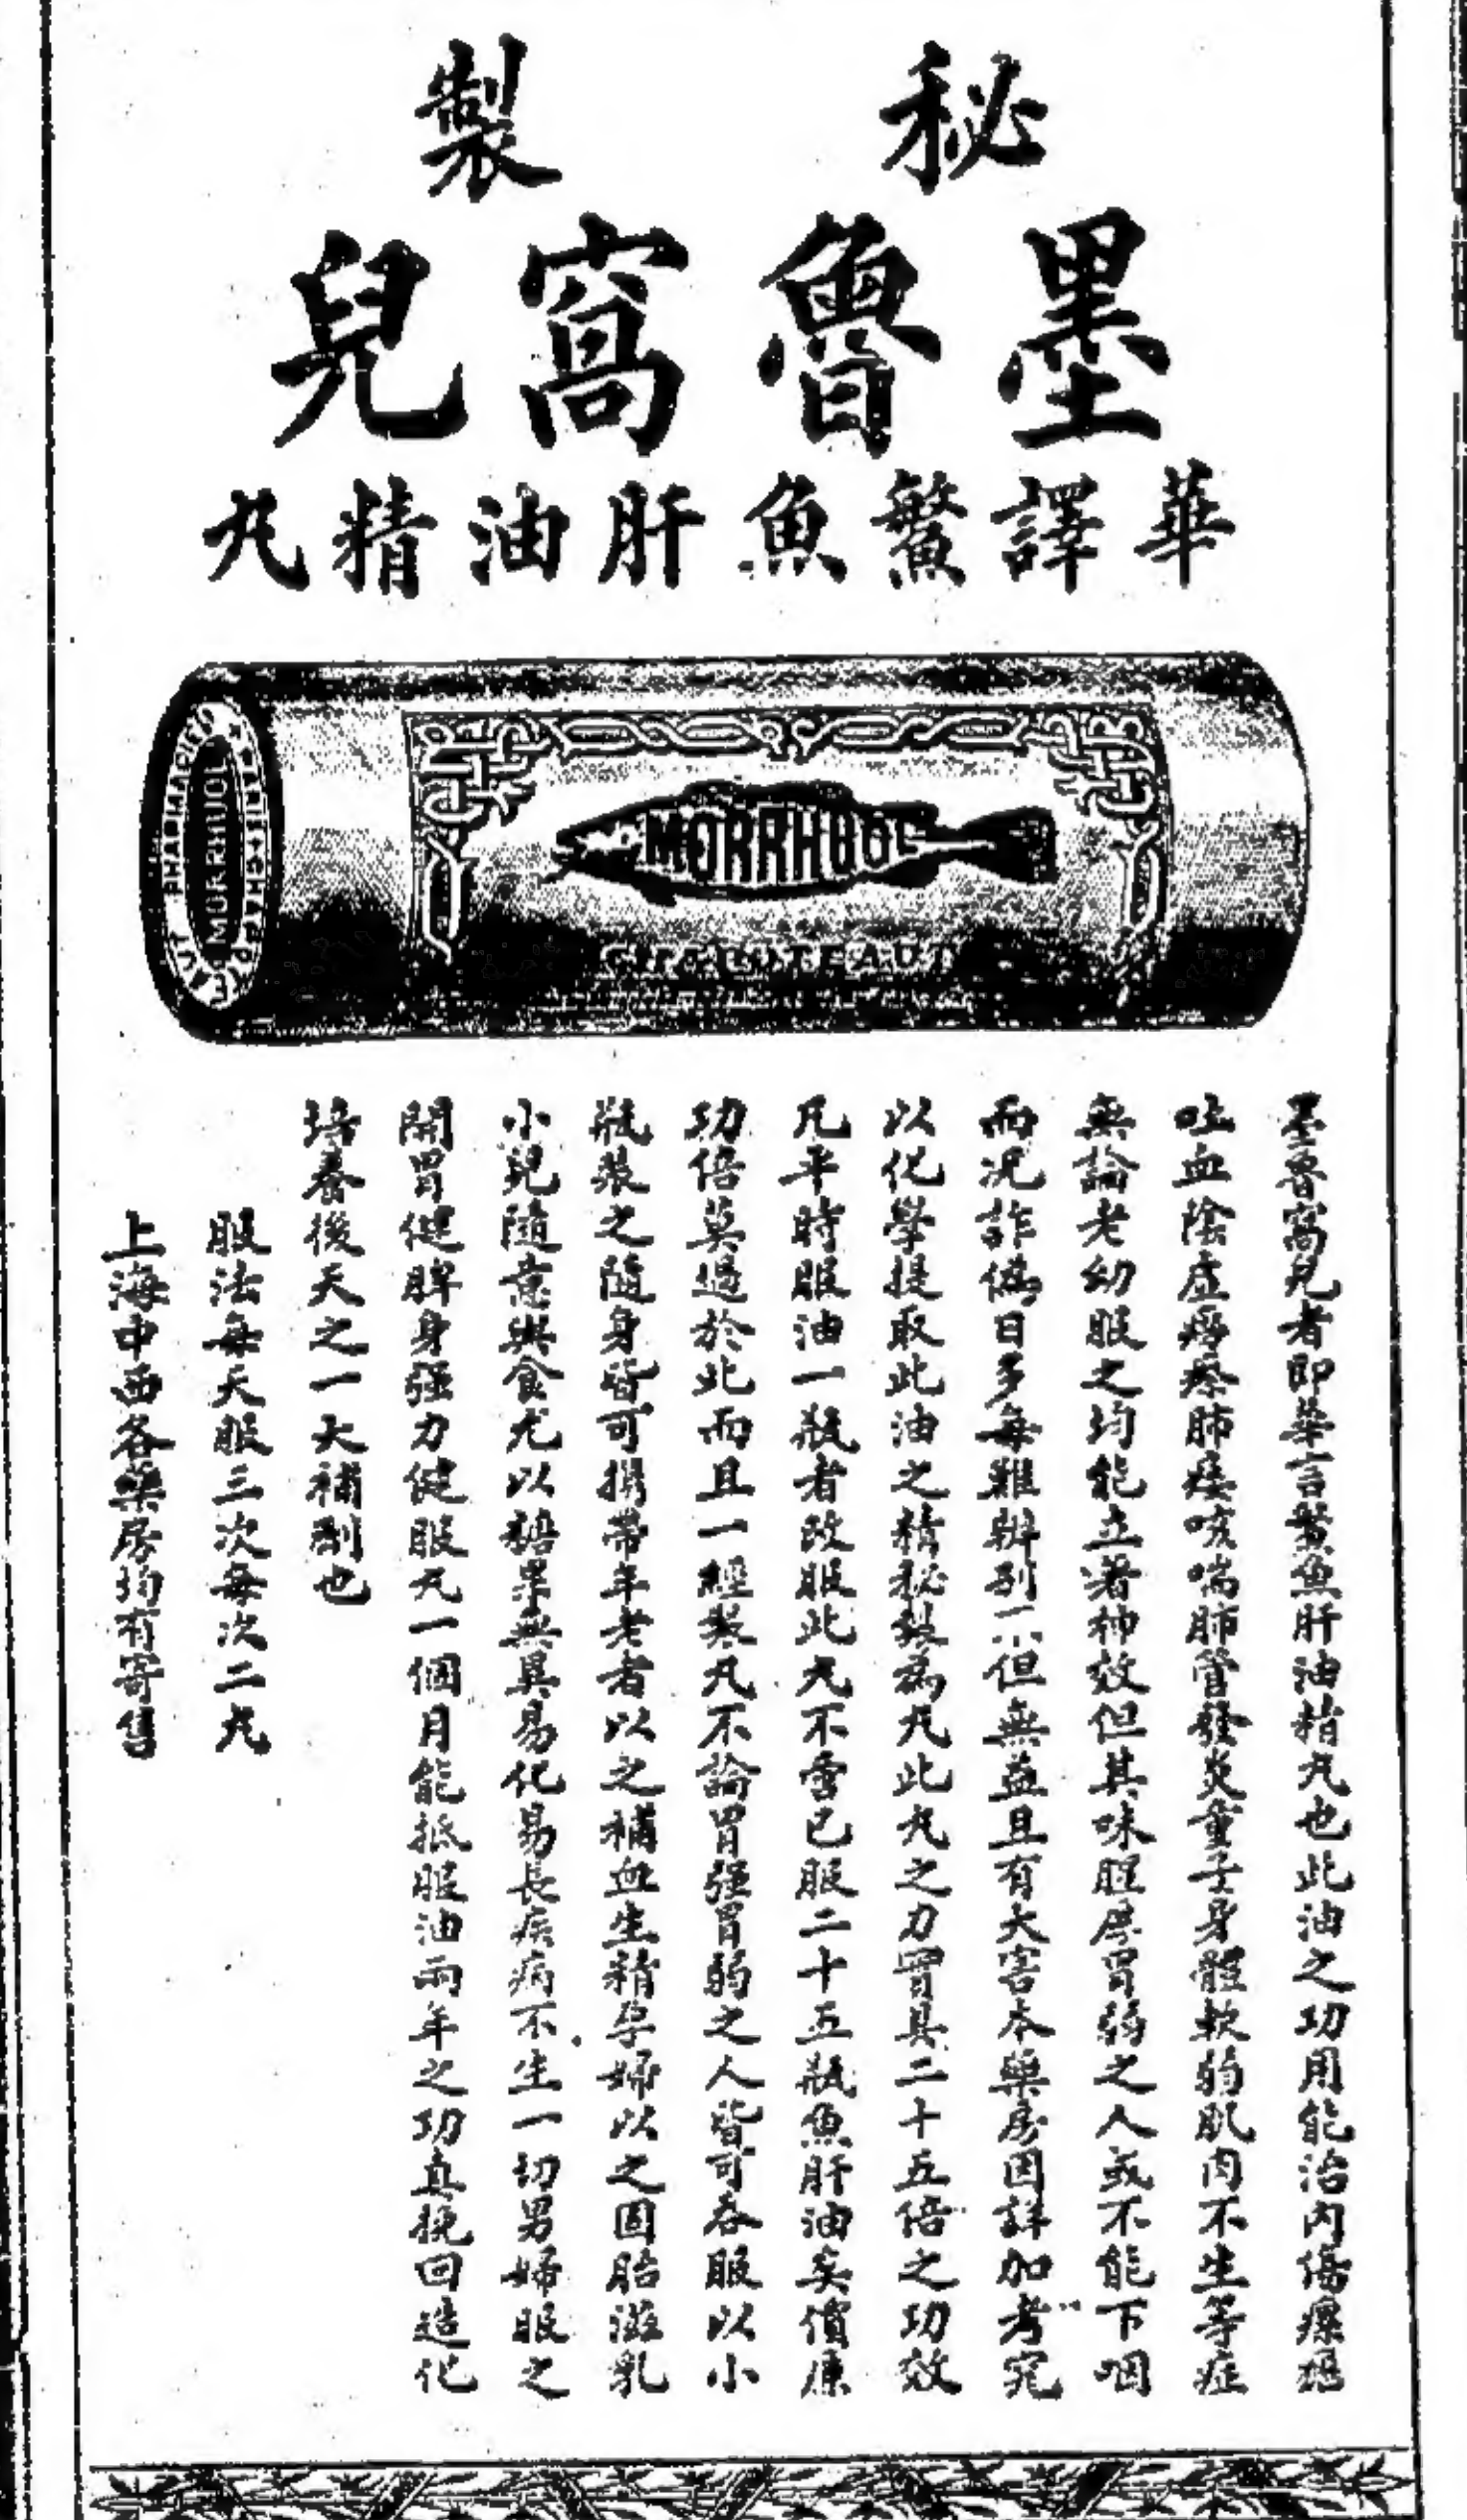 秘製
墨魯窩兒
華譯鰵魚肝油精丸
PHARMACIE VIVIENNE
MORRHUOL
MORRHUOL
CHAPOTEAUT
墨魯窩兒者即華言鰵魚肝油精丸也此油之功用能治內傷瘰癧
吐血陰虛癆瘵肺痿咳喘肺管發炎童子身體軟弱肌肉不生等症
無論老幼服之均能立著神效但其味腥厚胃弱之人或不能下咽
而况詐僞日多每難辨別不但無益且有大害本藥房因詳加考究
以化學提取此油之精秘製為丸此丸之力實具二十五倍之功效
凡平時服油一瓶者改服此丸不啻已服二十五瓶魚肝油矣價廉
功倍莫過於此而且一經製丸不論胃强胃弱之人皆可吞服以小
瓶裝之隨身皆可攜帶年老者以之補血生精孕婦以之固胎滋乳
小兒隨意與食尤以糖菓無異易化易長疾病不生一切男婦服之
開胃健脾身强力健服丸一個月能抵服油兩年之功真挽回造化
培養後天之一大補劑也
服法每天服三次每次二丸
上海中西各藥房均有寄售